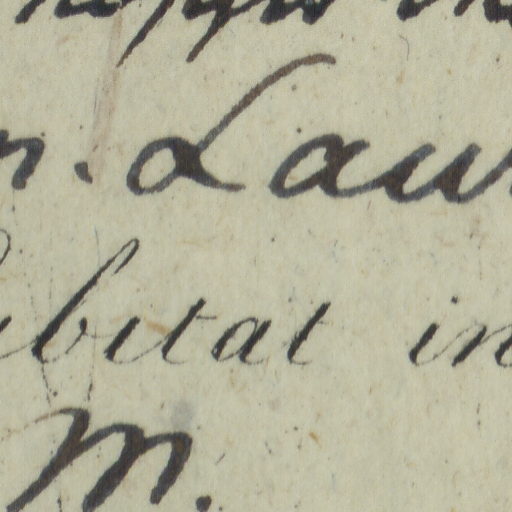 n. Lau
bitat in
M.